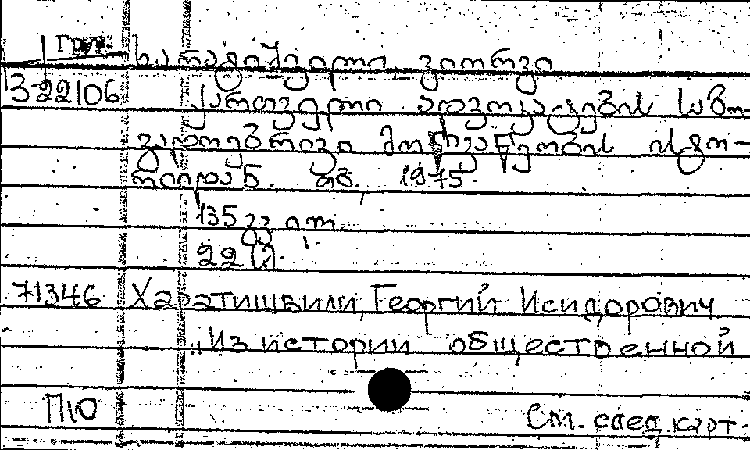 Груз.
ხარატიშვილი გიორგი
3-22106
ქართველი ადვოკატების საზო-
გადოებრივი მოღვაწეობის ისტო-
რიიდან. თბ. 1975.
135 გვ
22 ც.
71346 Харатишвили, Георгий Исидорович
„Из истории общественной
П10 См. след. карт.